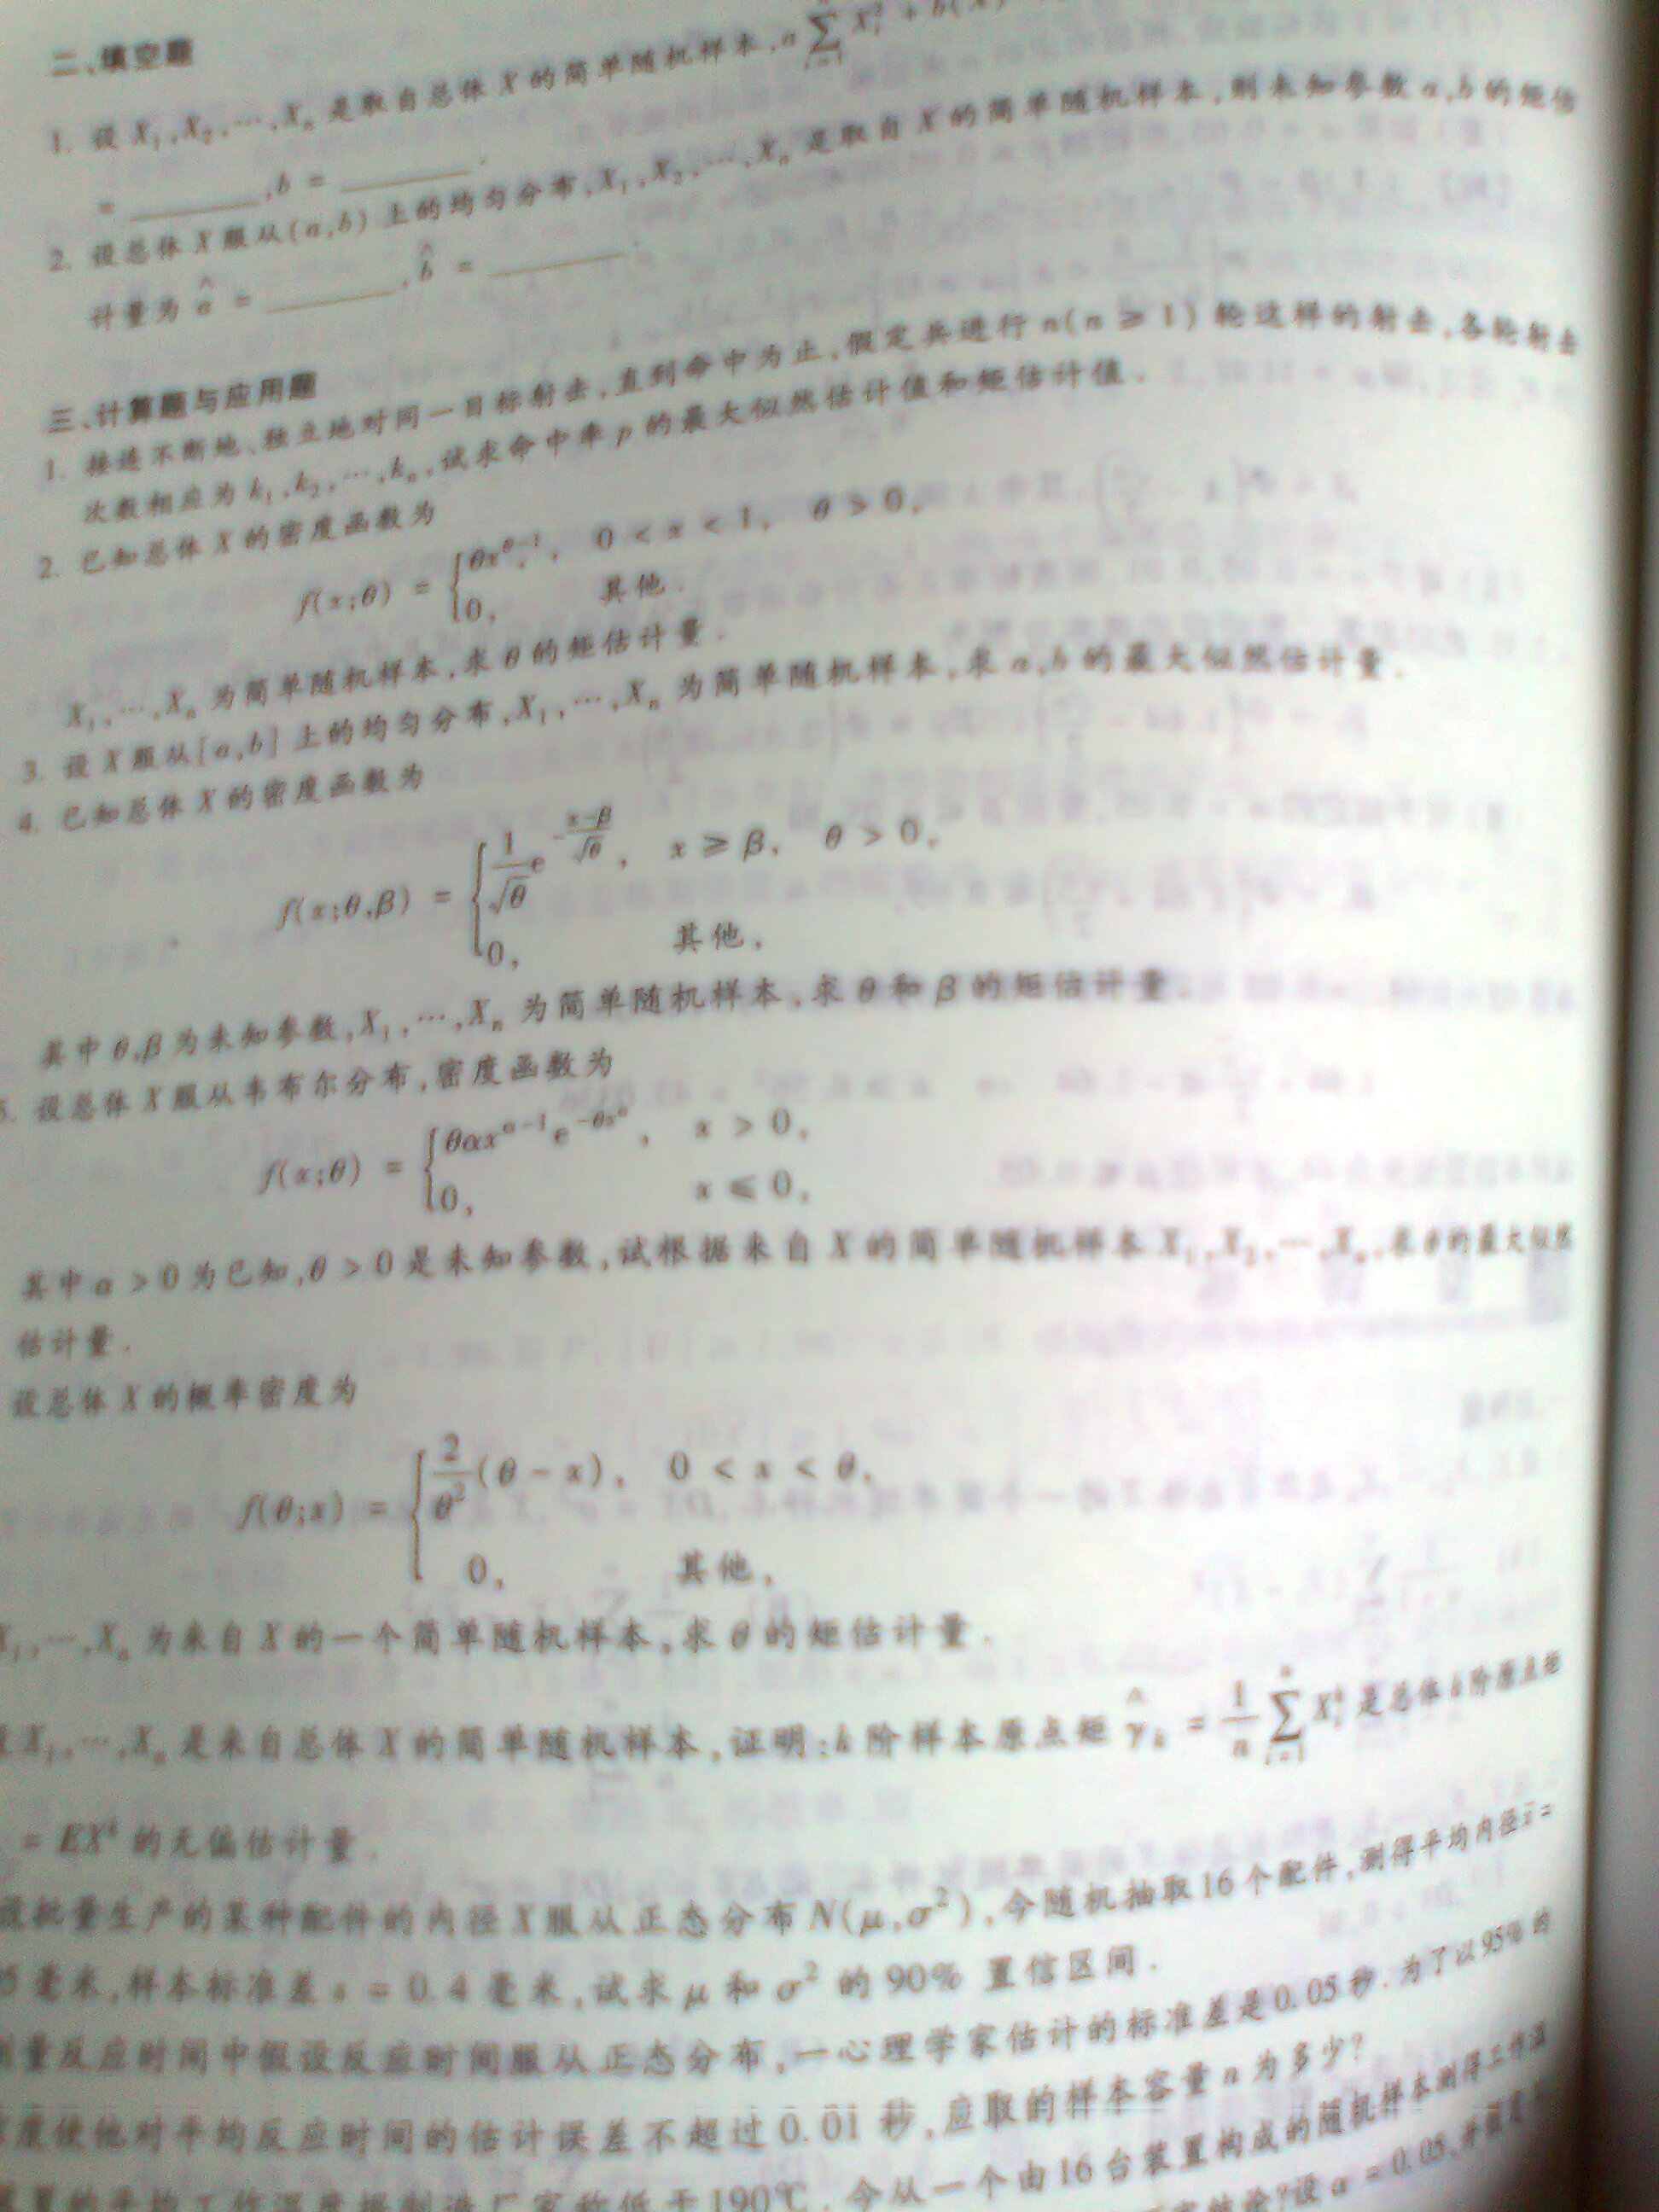 二、填空题
1. 设 X₁,X₂,…,Xₙ 是取自总体 X 的简单随机样本, a∑ᵢ₌₁ Xᵢ² + b(
= ______, b = ______.
2. 设总体 X 服从(a,b) 上的均匀分布, X₁,X₂,…,Xₙ 是取自 X 的简单随机样本, 则未知参数 a,b 的矩估
计量为 â = ______, b̂ = ______.
三、计算题与应用题
1. 接连不断地、独立地对同一目标射击, 直到命中为止, 假定共进行 n(n ≥ 1) 轮这样的射击, 各轮射击
次数相应为 k₁,k₂,…,kₙ, 试求命中率 p 的最大似然估计值和矩估计值.
2. 已知总体 X 的密度函数为
f(x;θ) = { θx^(θ-1), 0 < x < 1, θ > 0,
0, 其他.
X₁,…,Xₙ 为简单随机样本, 求 θ 的矩估计量.
3. 设 X 服从[a,b] 上的均匀分布, X₁,…,Xₙ 为简单随机样本, 求 a,b 的最大似然估计量.
4. 已知总体 X 的密度函数为
f(x;θ,β) = { 1/√θ e^(-(x-β)/√θ), x ≥ β, θ > 0,
0, 其他,
其中 θ,β 为未知参数, X₁,…,Xₙ 为简单随机样本, 求 θ 和 β 的矩估计量.
5. 设总体 X 服从韦布尔分布, 密度函数为
f(x;θ) = { θαx^(α-1)e^(-θx^α), x > 0,
0, x ≤ 0,
其中 α > 0 为已知, θ > 0 是未知参数, 试根据来自 X 的简单随机样本 X₁,X₂,…,Xₙ, 求 θ 的最大似然
估计量.
设总体 X 的概率密度为
f(θ;x) = { 2/θ² (θ - x), 0 < x < θ,
0, 其他,
X₁,…,Xₙ 为来自 X 的一个简单随机样本, 求 θ 的矩估计量.
设 X₁,…,Xₙ 是来自总体 X 的简单随机样本, 证明: k 阶样本原点矩 γ̂ₖ = 1/n ∑ᵢ₌₁ⁿ Xᵢᵏ 是总体 k 阶原点矩
= EXᵏ 的无偏估计量.
设批量生产的某种配件的内径 X 服从正态分布 N(μ,σ²), 今随机抽取 16 个配件, 测得平均内径 x̄ =
05 毫米, 样本标准差 s = 0.4 毫米, 试求 μ 和 σ² 的 90% 置信区间.
测量反应时间中假设反应时间服从正态分布, 一心理学家估计的标准差是 0.05 秒. 为了以 95% 的
度使他对平均反应时间的估计误差不超过 0.01 秒, 应取的样本容量 n 为多少?
装置的平均工作温度据制造厂家称低于 190℃. 今从一个由 16 台装置构成的随机样本测得工作温
设 α = 0.05, 并假定